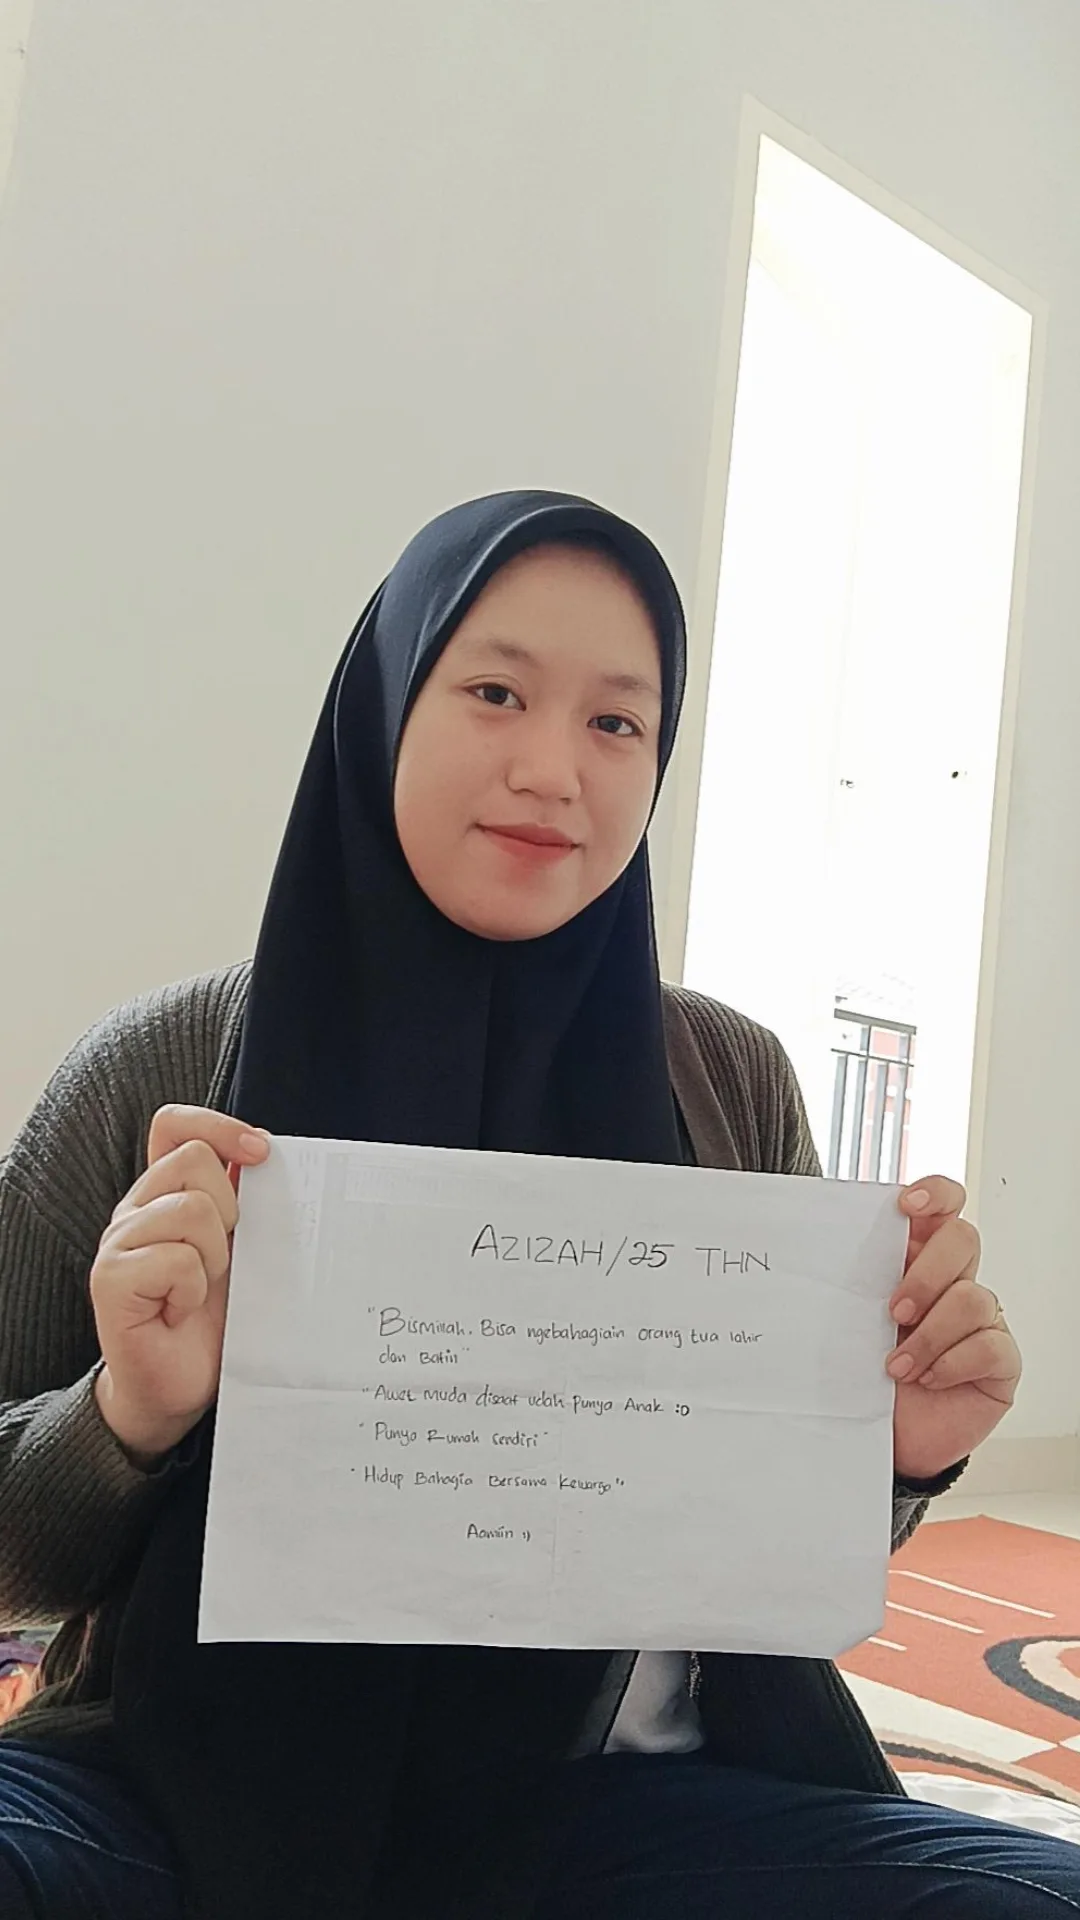 AZIZAH/25 THN
"Bismillah. Bisa ngebahagiain orang tua lahir
dan Batin"
"Awet muda disaat udah Punya Anak :D
"Punya Rumah Sendiri"
"Hidup Bahagia Bersama Keluarga"
Aamiin :)